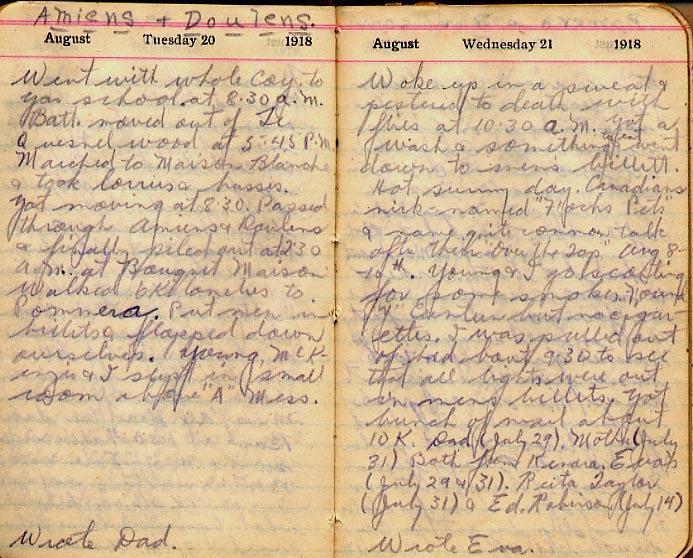 Amiens & Doulens.
August Tuesday 20 1918
Went with whole Coy to
gas school at 8:30 a.m.
Batt. moved out of Le
Quesnel wood at 5:45 P.M.
Marched to Maison Blanche
& took lorries & busses.
Got moving at 8:30. Passed
through Amiens & Doulens
& finally piled out at 2:30
a.m. at Bouquet Maison
Walked 6 Kilometres to
Pommera. Put men in
billets & flopped down
ourselves. Young, McK-
enzie & I slept in small
room above "A" Mess.
Wrote Dad.
August Wednesday 21 1918
Woke up in a sweat &
pestered to death with
flies at 10:30 a.m. Got a
wash & something to eat went
down to men's billett.
Hot sunny day. Canadians
nick-named "Fochs Pets"
& name quite common talk
after their "Over the Top" Aug 8-
10th. Young & I go scouting
for some smokes. Found
"Y" Canteen but no cigar-
ettes. I was pulled out
of bed bout 9:30 to see
that all lights were out
in men's billets. Got
bunch of mail about
10 K. Dad (July 29). Mother (July
31) Both from Kenora. Eva's
(July 29 & 31). Reita Taylor
(July 31) & Ed. Robinson (July 14)
Wrote Eva.